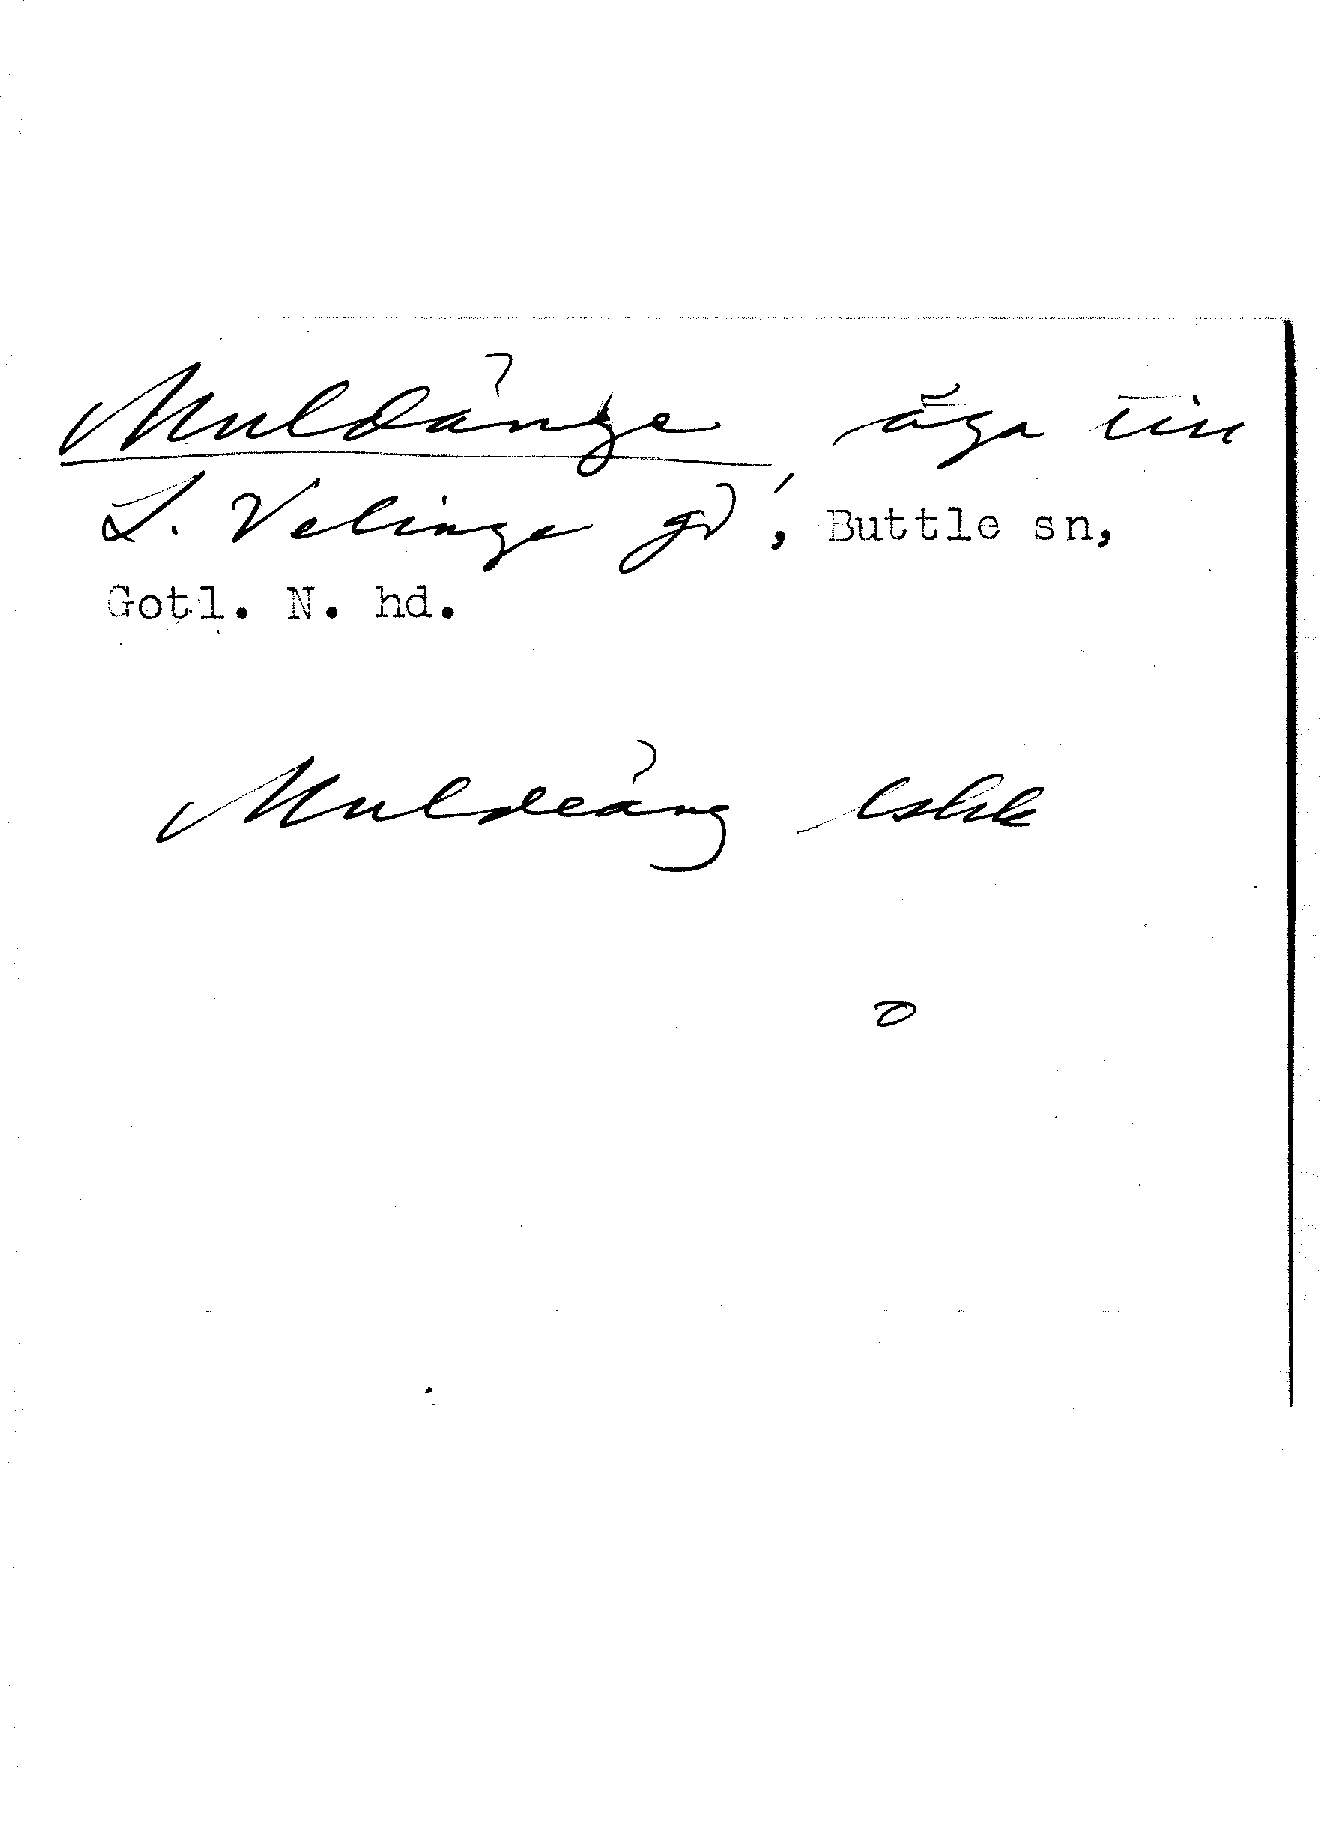 Muldänge äga till
L. Velinge gd, Buttle sn,
Gotl. N. hd.
Muldeäng lshk